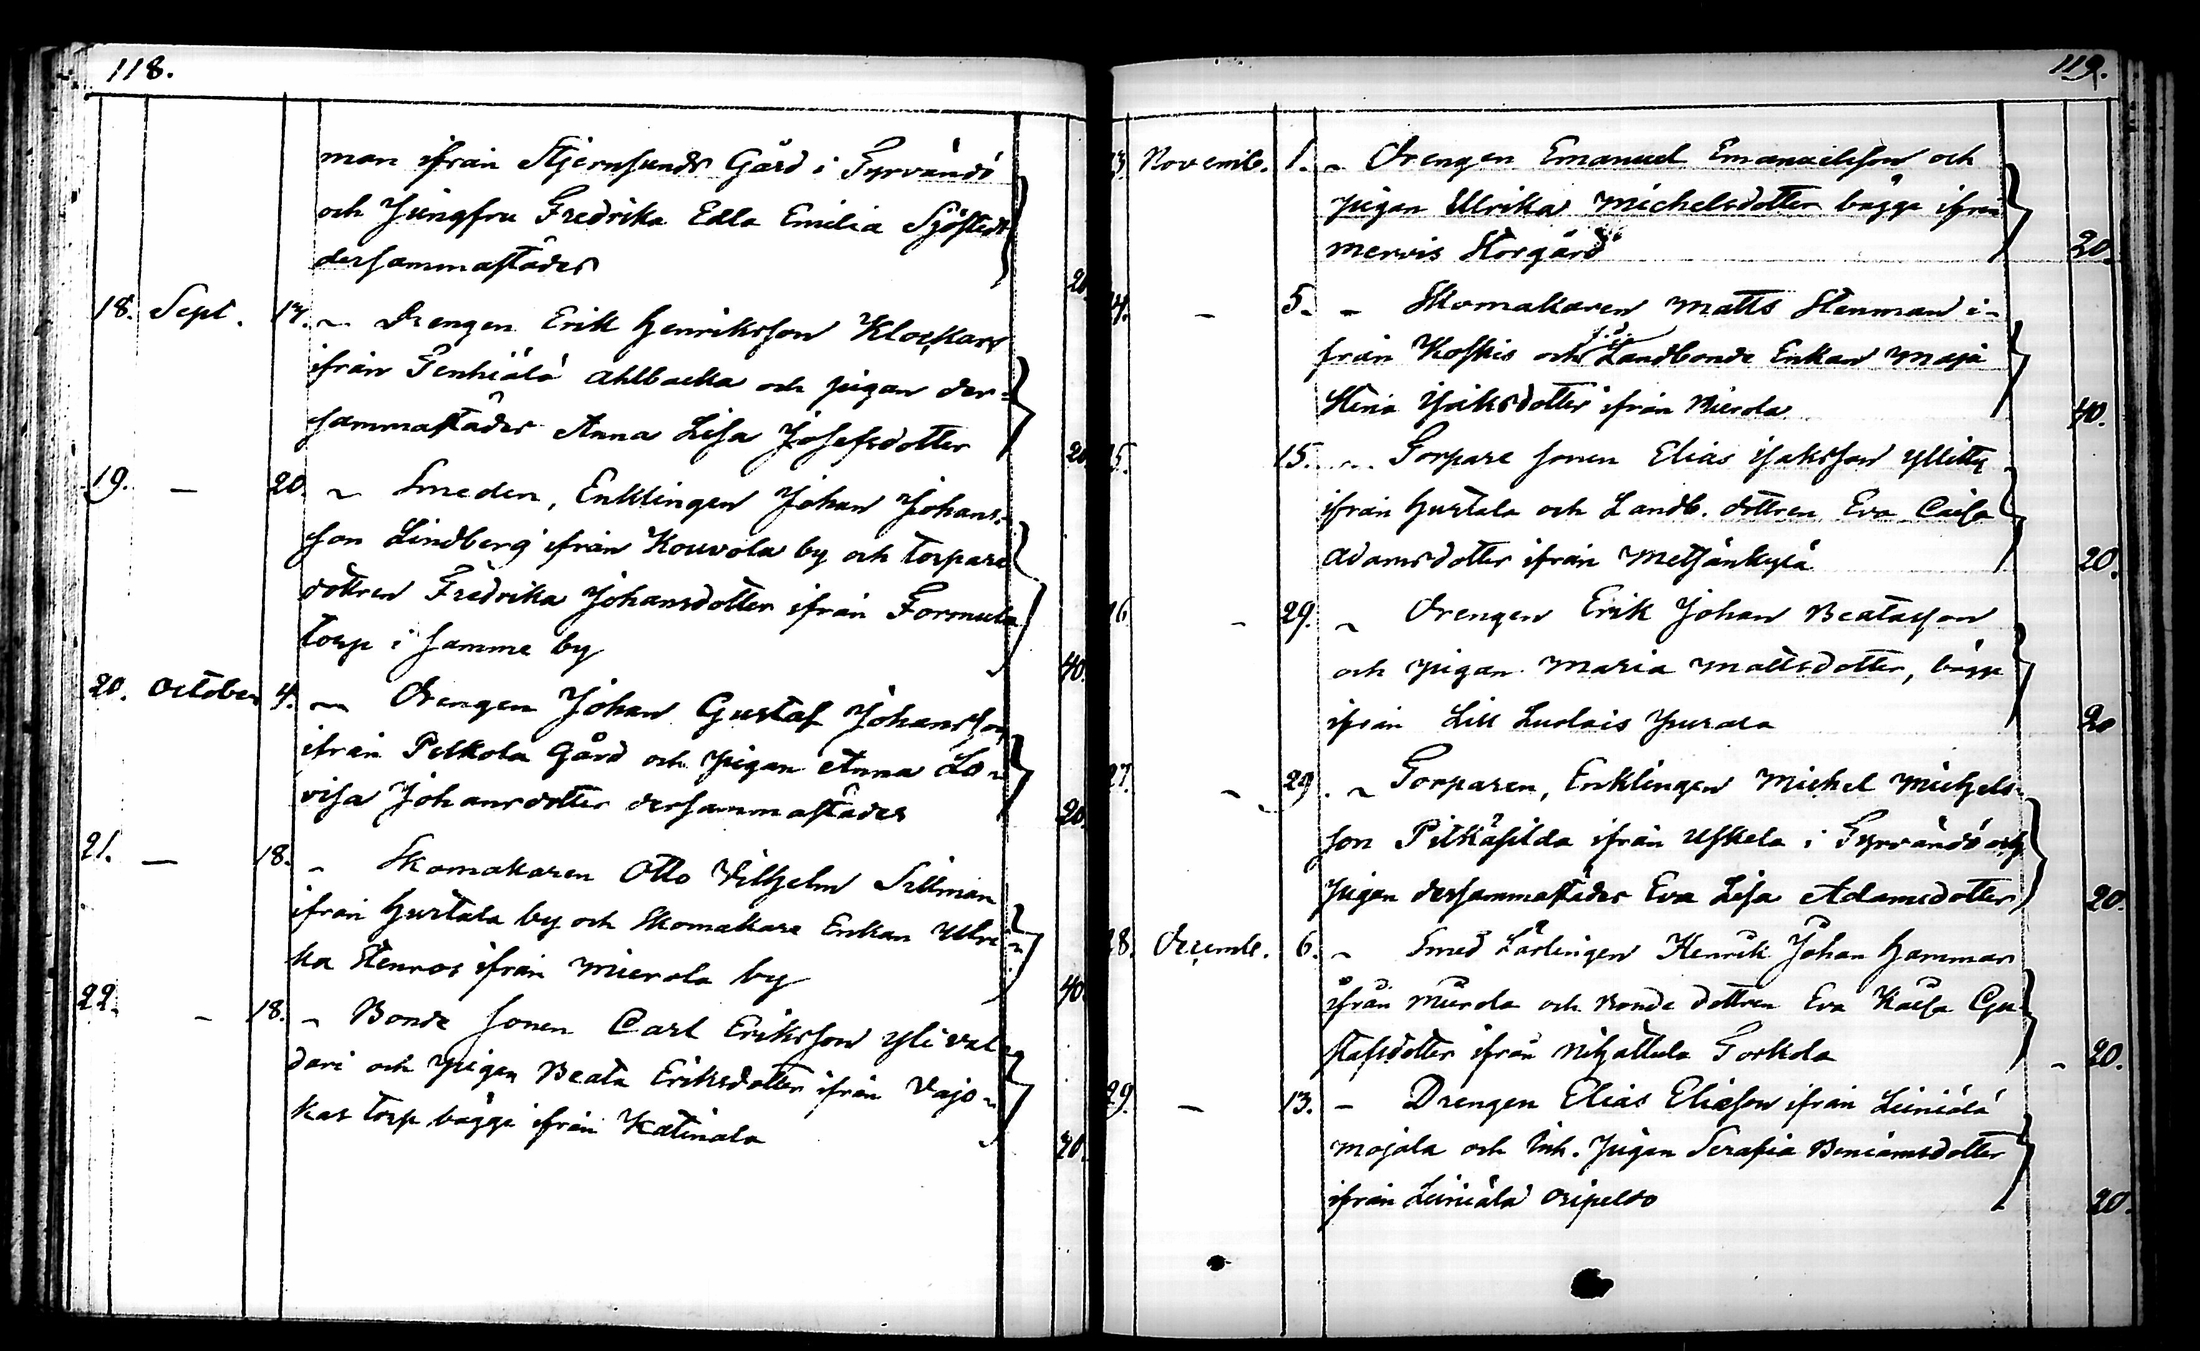 118.
man ifrån Stjernsunds Gård i Tyrvändö
och Jungfru Fredrika Edla Emilia Sjöstedt
dersammastädes 20
18. Sept. 17. Drengen Erik Henriksson Klockars
ifrån Tenhiälä Ahlbacka och pigan der=
sammastädes Anna Lisa Josefsdotter 20
19. — 20. Smeden, Enklingen Johan Johans-
son Lindberg ifrån Kouvola by och torpare
dottren Fredrika Johansdotter ifrån Tormula
torp i samme by 40.
20. October 4. Drengen Johan Gustaf Johansson
ifrån Pelkola Gård och Pigan Anna Lo-
visa Johansdotter dersammastädes 20.
21. — 18. Skomakaren Otto Vilhelm Sillman
ifrån Hurtala by och Skomakare Enkan Ulri-
ka Stenros ifrån Mierola by 40.
22. - 18. Bonde sonen Carl Eriksson Ylival-
dari och pigan Beata Eriksdotter ifrån Vajo-
kas torp bägge ifrån Katinala 20.
119.
23. Novemb. 1. Drengen Emanuel Emanuelsson och
pigan Ulrika Michelsdotter bägge ifrån
Mervis Storgård 20.
24. - 5. - Skomakaren Matts Stenman i-
från Koskis och Landbonde Enkan Maja
Stina Isriksdotter ifrån Mierola 40.
25. 15. Torpare sonen Elias Isaksson Yllitty
ifrån Hurtala och Landb. dottren Eva Caisa
Adamsdotter ifrån Metsänkylä 20.
26 - 29. Drengen Erik Johan Beatasson
och pigan Maria Mattsdotter, bägge
ifrån Lill Luolais 20
27. - 29. Torparen, Enklingen Michel Michels-
son Pitkäsilda ifrån Uskela i Tyrvändö och
Pigan dersammastädes Eva Lisa Adamsdotter 20.
28. Decemb. 6. Smed Lärlingen Henrik Johan Hammar
ifrån Mierola och Bonde dottren Eva Kaisa Gu-
stafsdotter ifrån Nihattula Torkola 20.
29. — 13. - Drengen Elias Eliasson ifrån Leiniälä
Mojala och Inh. Pigan Serafia Beniamsdotter
ifrån Leiniälä 20.